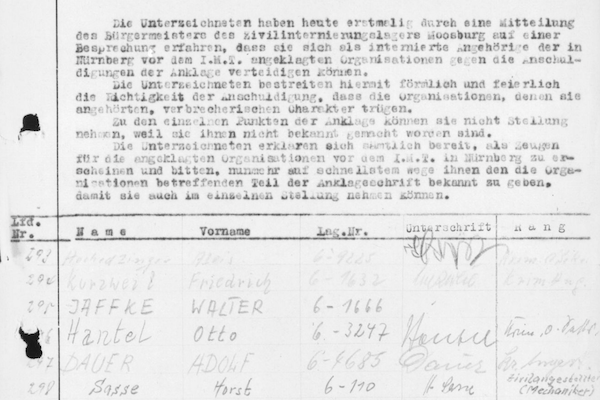 Die Unterzeichneten haben heute erstmalig durch eine Mitteilung
des Bürgermeisters des Zivilinternierungslagers Moosburg auf einer
Besprechung erfahren, dass sie sich als internierte Angehörige der in
Nürnberg vor dem I.M.T. angeklagten Organisationen gegen die Anschul-
digungen der Anklage verteidigen können.
Die Unterzeichneten bestreiten hiermit förmlich und feierlich
die Richtigkeit der Anschuldigung, dass die Organisationen, denen sie
angehörten, verbrecherischen Charakter trügen.
Zu den einzelnen Punkten der Anklage können sie nicht Stellung
nehmen, weil sie ihnen nicht bekannt gemacht worden sind.
Die Unterzeichneten erklären sich sämtlich bereit, als Zeugen
für die angeklagten Organisationen vor dem I.M.T. in Nürnberg zu er-
scheinen und bitten, nunmehr auf schnellstem wege ihnen den die Orga-
nisationen betreffenden Teil der Anklageschrift bekannt zu geben,
damit sie auch im einzelnen Stellung nehmen können.
Lfd. Nr. Name Vorname Lag.Nr. Unterschrift Rang
293
294 Kurzweil Friedrich 6-1632
295 JAFFKE WALTER 6-1666
296 Hantel Otto 6-3247
297 DAUER ADOLF 6-4685 Dauer
298 Sasse Horst 6-110 Zivilangestellter
(Mechaniker)